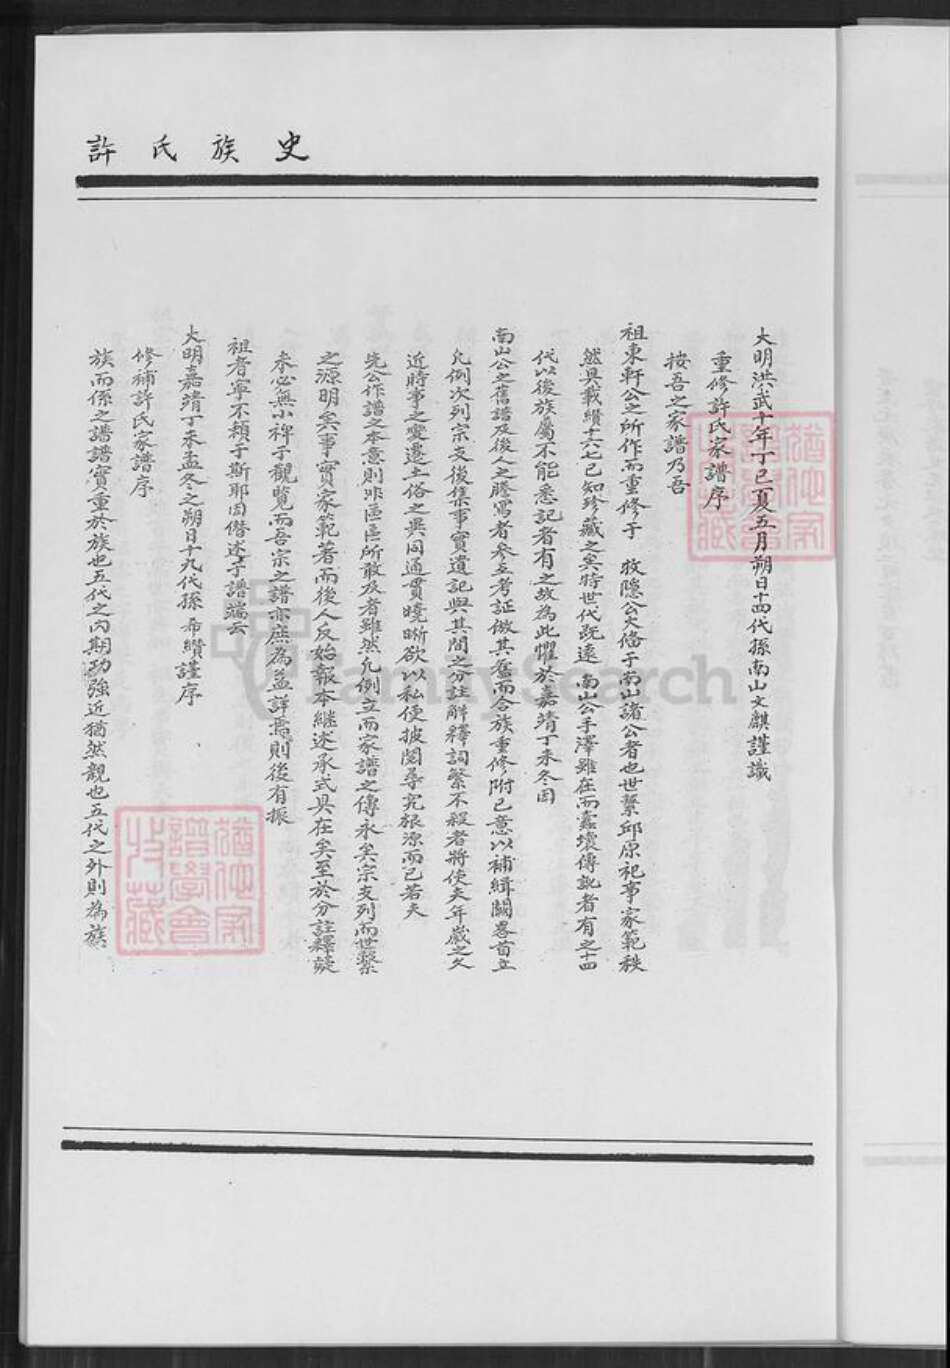 許氏族史
大明洪武十年丁巳夏五月朔日十四代孫南山文麒謹識
重修許氏家譜序
按吾之家譜乃吾
祖東軒公之所作而重修于 牧隱公大俻于南山諸公者也世繫邱原祀事家範秩
然具載纘十六七已知珍藏之矣時世代既遠 南山公手澤雖在而蠹壞傳訛者有之十四
代以後族屬不能悉記者有之故為此懼於嘉靖丁未冬因
南山公之舊譜及後人之謄寫者參互考証倣其舊而合族重修附己意以補緝闕畧首立
凡例次列宗支後集事實遺記與其間之分註解釋詞繁不殺者將使夫年嵗之久
近時事之變遷土俗之異同通貫曉晰欲以私便披閱尋究根源而已若夫
先公作譜之本意則非區區所敢及者雖然凡例立而家譜之傳永矣宗支列而世繫
之源明矣事實家範著而後人反始報本継述承式具在矣至於分註釋疑
未必無小裨于觀覽而吾宗之譜亦庶為益詳焉則後有振
祖者寧不頼于斯耶因僭述于譜端云
大明嘉靖丁未孟冬之朔日十九代孫希纘謹序
修補許氏家譜序
族而係之譜譜實重於族也五代之内期功強近猶然親也五代之外則為族
FamilySearch